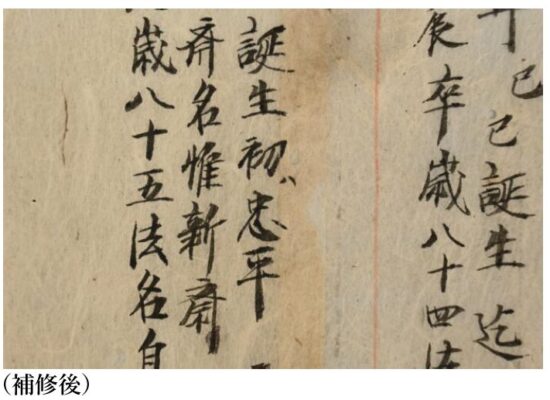 年己巳誕生迄
辰卒歳八十四法
誕生初ハ忠平
斎名惟新斎
歳八十五法名自
(補修後)